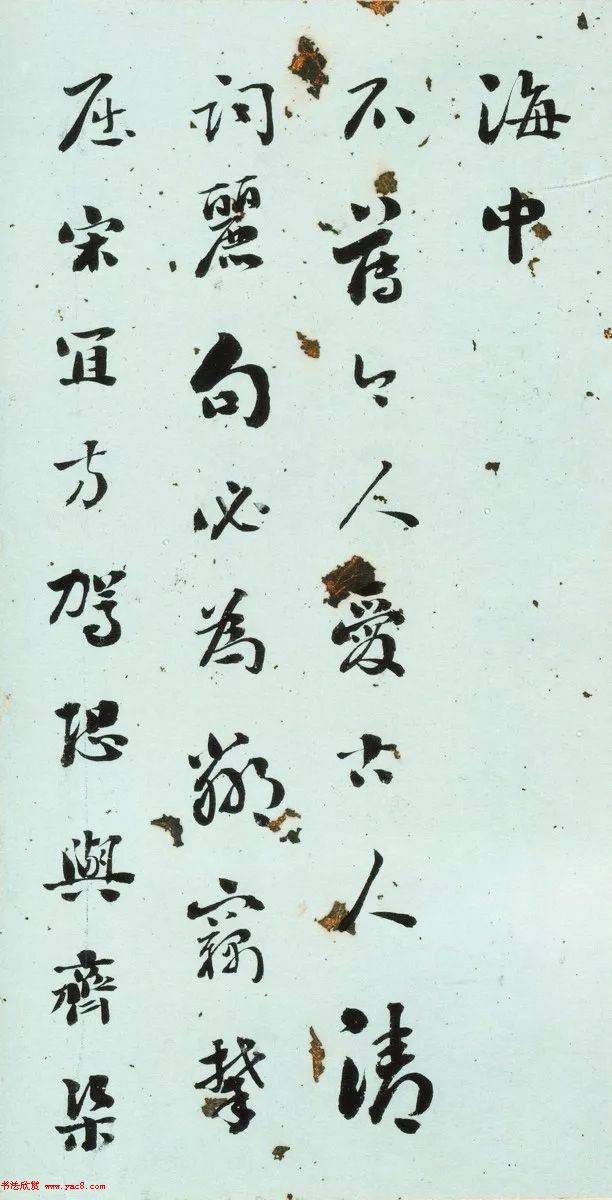 海中
不薄今人愛古人清
詞麗句必為鄰竊攀
屈宋宜方駕恐與齊梁
书法欣赏 www.yac8.com